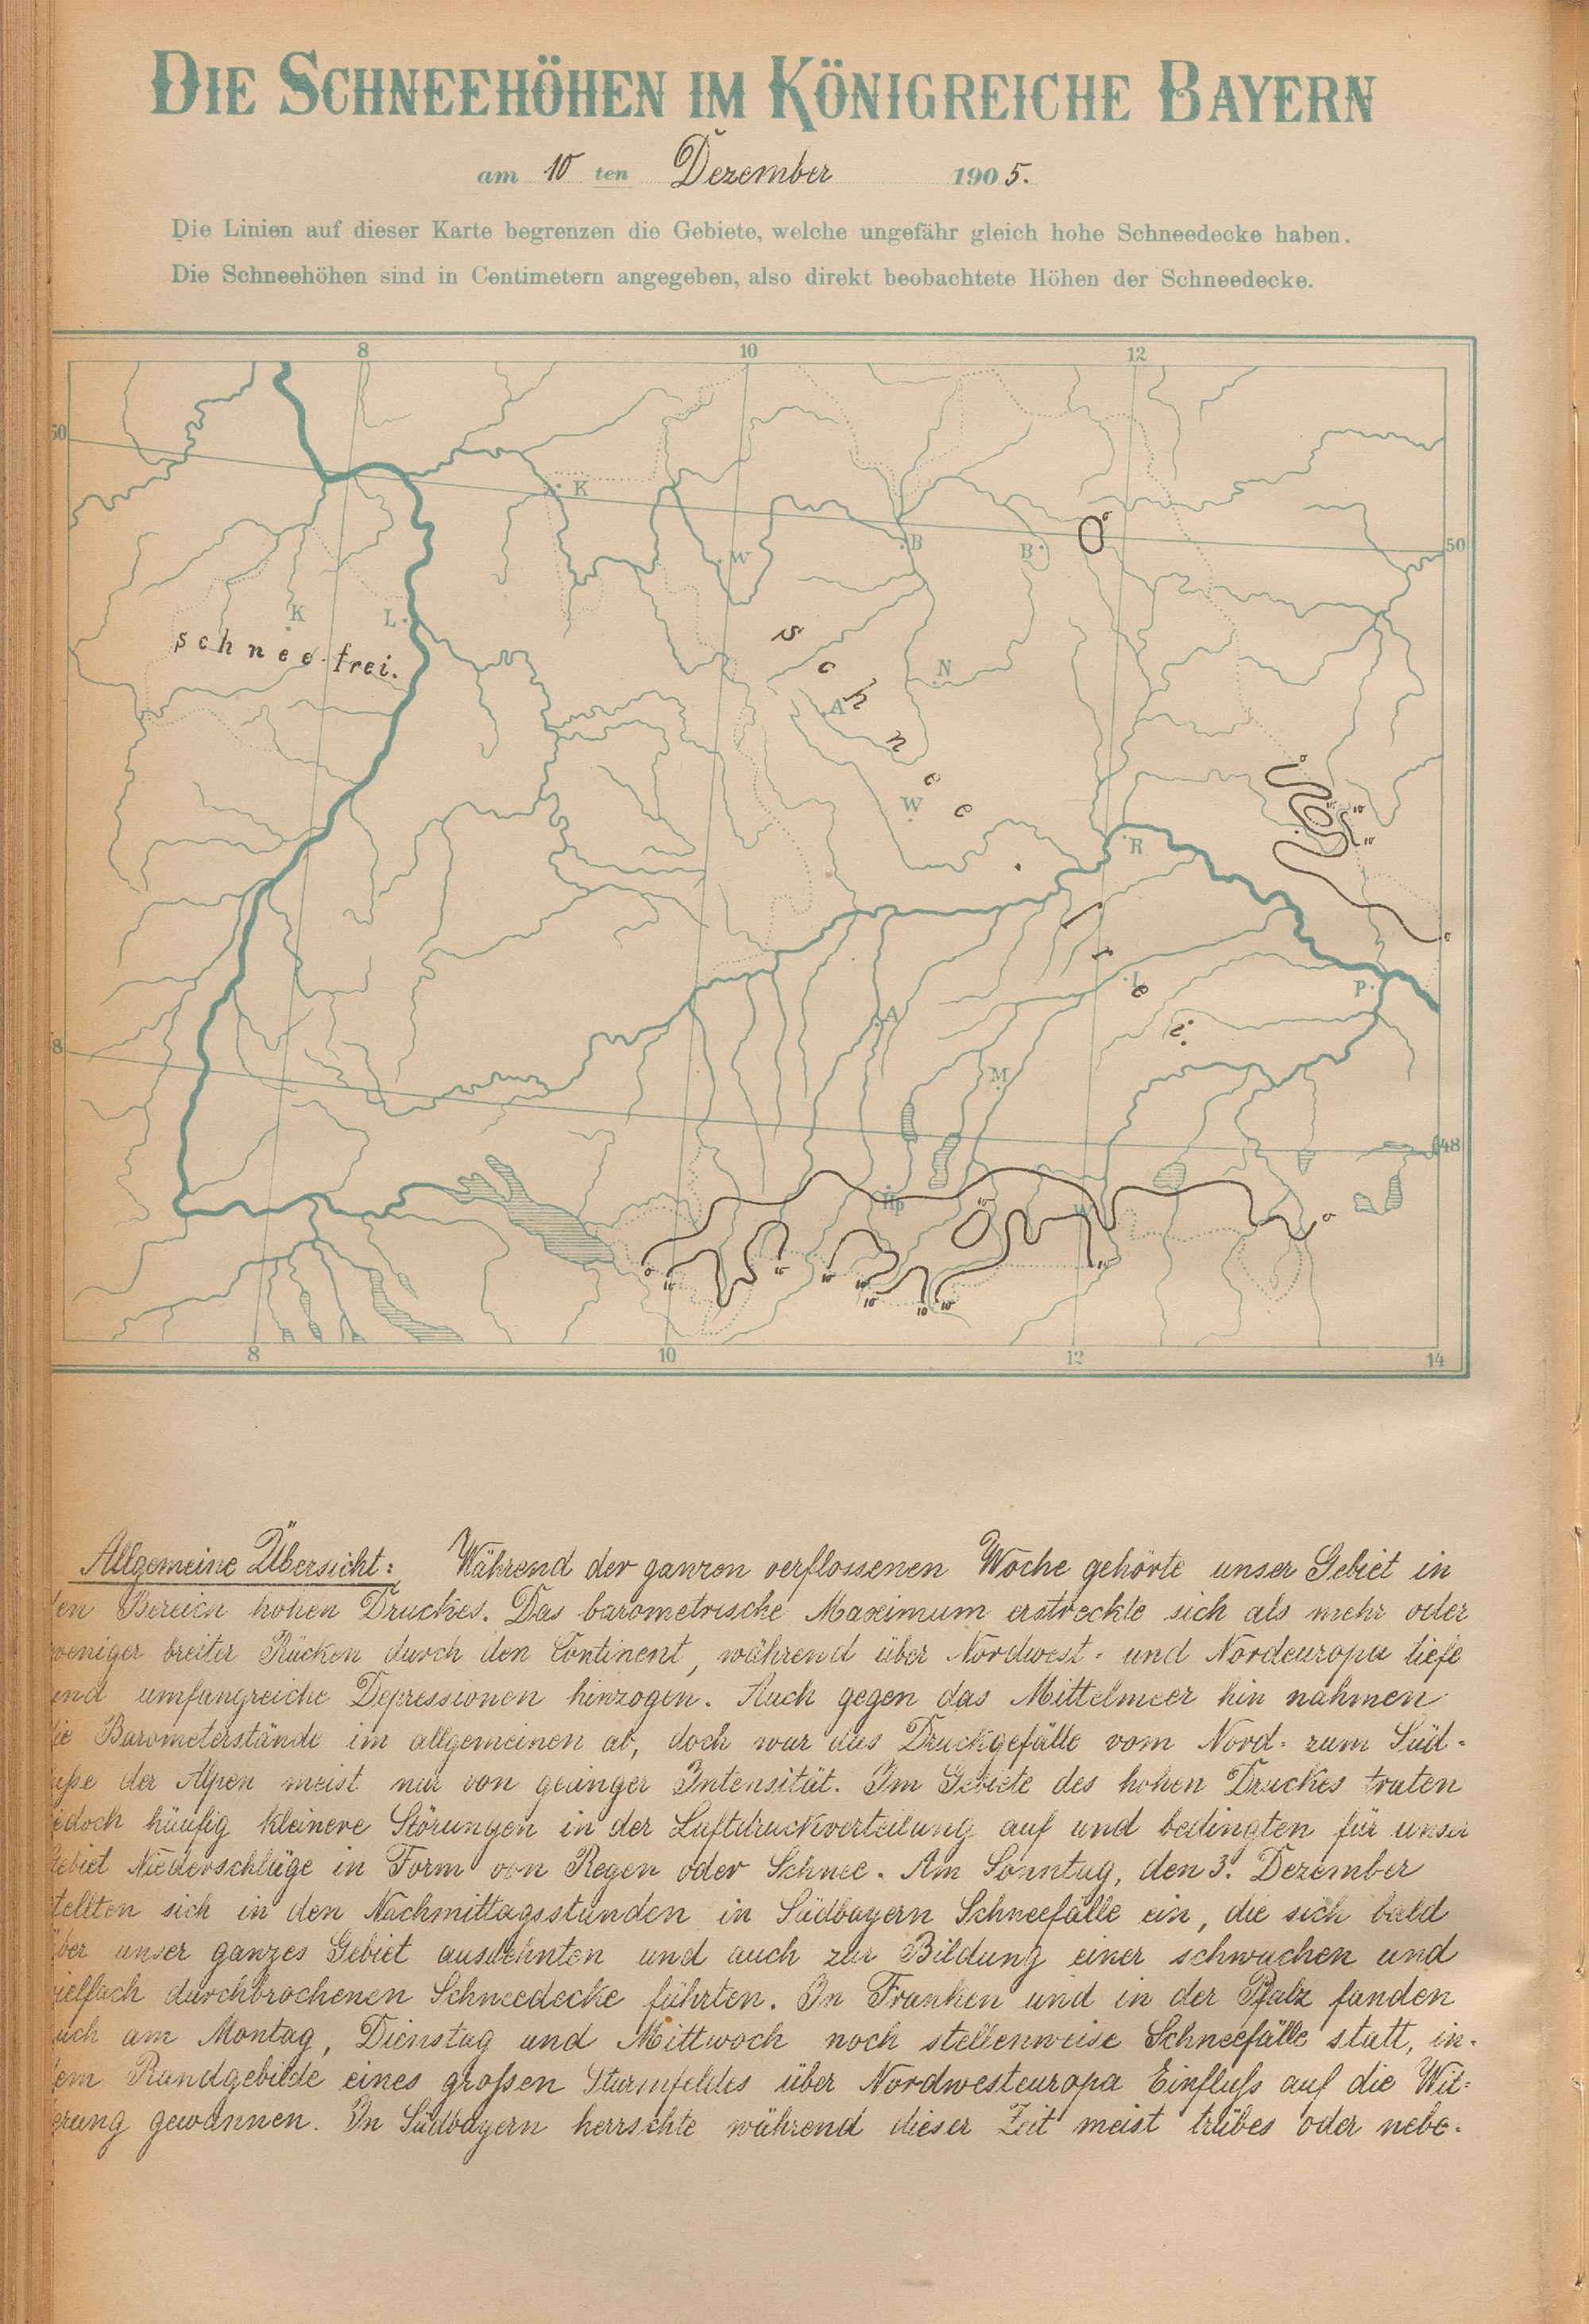 DIE SCHNEEHÖHEN IM KÖNIGREICHE BAYERN
am 10 ten Dezember 1905.
Die Linien auf dieser Karte begrenzen die Gebiete, welche ungefähr gleich hohe Schneedecke haben.
Die Schneehöhen sind in Centimetern angegeben, also direkt beobachtete Höhen der Schneedecke.
8 10 12
50
K
50
W
B
B
0
K
L
schnee-frei.
N
A
W
schnee
frei.
0
R
P
0
A
L
M
8
48
0
0
8 10 12 14
Allgemeine Übersicht: Während der ganzen verflossenen Woche gehörte unser Gebiet in
Bereich hohen Druckes. Das barometrische Maximum erstreckte sich als mehr oder
weniger breiter Rücken durch den Continent, während über Nordwest- und Nordeuropa tiefe
und umfangreiche Depressionen hinzogen. Auch gegen das Mittelmeer hin nahmen
die Barometerstände im allgemeinen ab, doch war das Druckgefälle vom Nord- zum Süd-
fuße der Alpen meist nur von geringer Intensität. Im Gebiete des hohen Druckes traten
jedoch häufig kleinere Störungen in der Luftdruckverteilung auf und bedingten für unser
Gebiet Niederschläge in Form von Regen oder Schnee. Am Sonntag, den 3. Dezember
stellten sich in den Nachmittagsstunden in Südbayern Schneefälle ein, die sich bald
über unser ganzes Gebiet ausdehnten und auch zur Bildung einer schwachen und
vielfach durchbrochenen Schneedecke führten. In Franken und in der Pfalz fanden
auch am Montag, Dienstag und Mittwoch noch stellenweise Schneefälle statt, in-
dem Randgebilde eines großen Sturmfeldes über Nordwesteuropa Einfluß auf die Wit-
terung gewannen. In Südbayern herrschte während dieser Zeit meist trübes oder nebe-